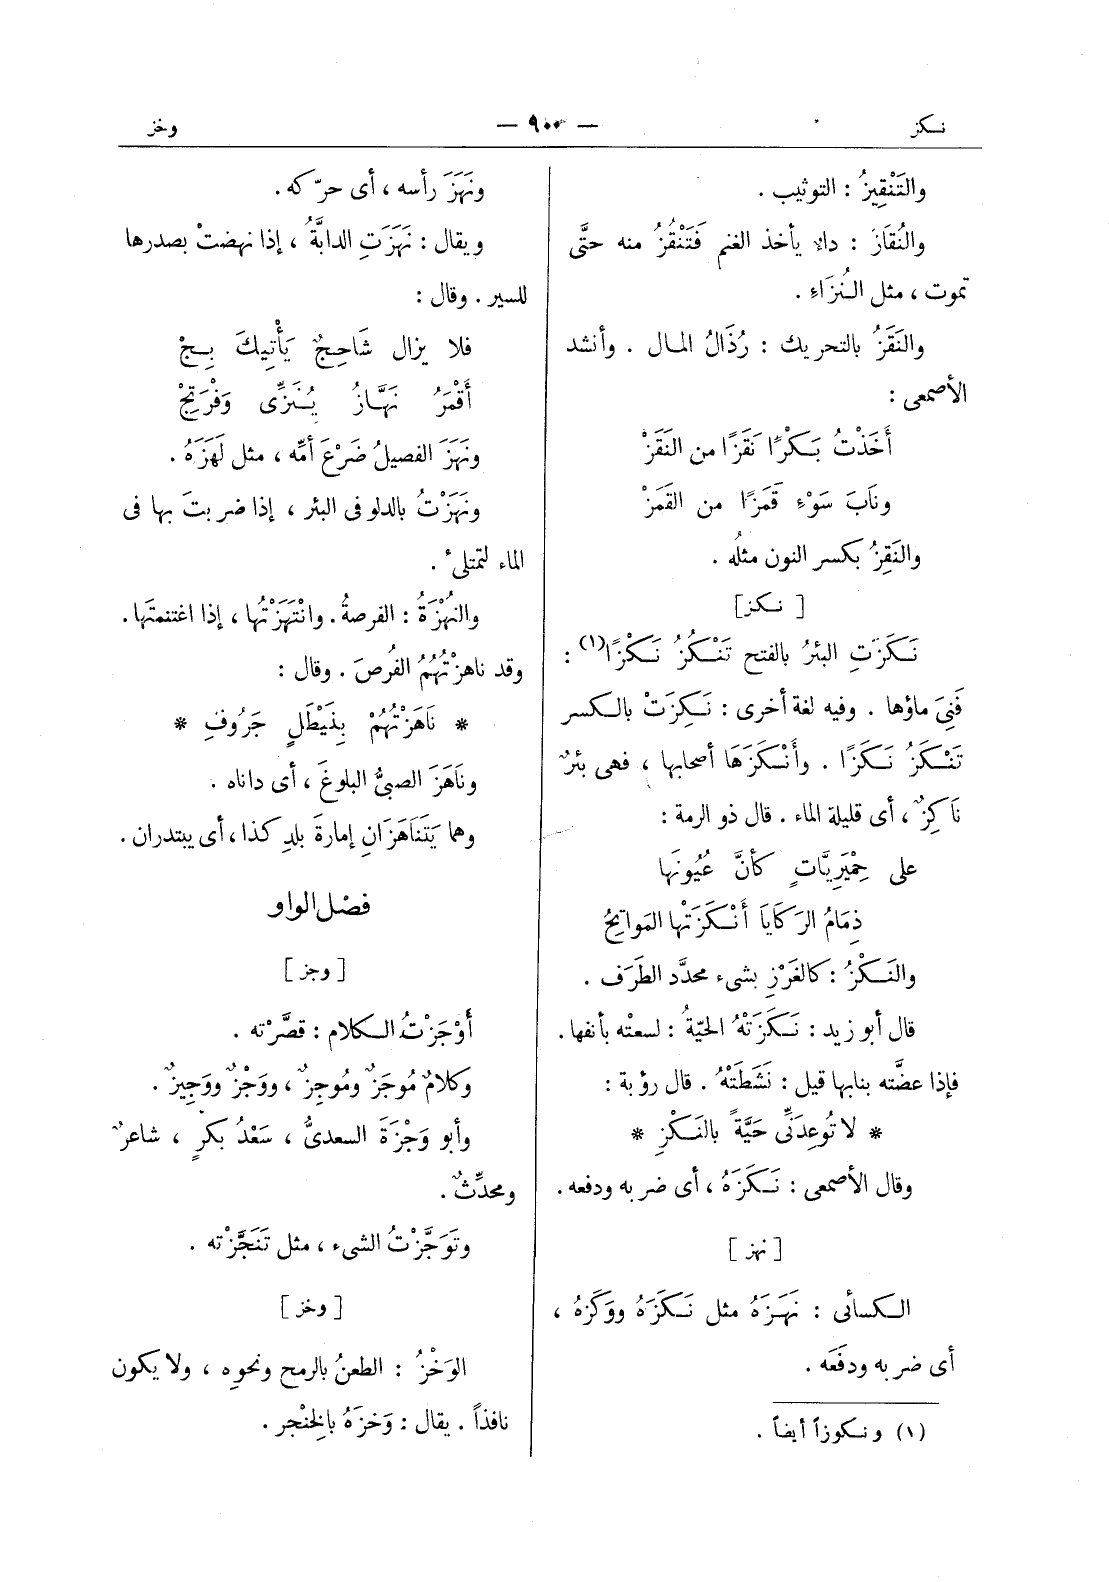 نكز
— ٩٠٠ —
وخز
والتَنْقِيزُ : التوثيب .
والنُقَازُ : داء يأخذ الغنم فَتَنْقُزُ منه حتَّى
تموت ، مثل النُزَاءِ .
والنَقَزُ بالتحريك : رُذَالُ المال . وأنشد
الأصمعى :
أَخَذْتُ بَكْرًا نَقَزًا من النَقَزْ
ونَابَ سَوْءٍ قَمَزًا من القَمَزْ
والنَقِزُ بكسر النون مثلُه .
[ نكز ]
نَكَزَتِ البئرُ بالفتح تَنْكُزُ نَكْزًا(١) :
فَنِىَ ماؤها . وفيه لغة أخرى : نَكِزَتْ بالكسر
تَنْكَزُ نَكَزًا . وأَنْكَزَهَا أصحابها ، فهى بئرٌ
نَاكِزٌ ، أى قليلة الماء . قال ذو الرمة :
على حِمْيَرِيَّاتٍ كأنَّ عُيُونَها
ذِمَامُ الرَكَايَا أَنْكَزَتْها المَوَاتِحُ
والنَكْزُ : كالغَرْزِ بشىء محدَّد الطَرَف .
قال أبو زيد : نَكَزَتْهُ الحَيّةُ : لسعتْه بأنفها .
فإذا عضَّته بنابها قيل : نَشَطَتْهُ . قال رؤبة :
* لا تُوعِدَنِّى حَيَّةً بالنَكْزِ *
وقال الأصمعى : نَكَزَهُ ، أى ضربه ودفعه .
[ نهز ]
الكسائى : نَهَزَهُ مثل نَكَزَهُ ووَكَزَهُ ،
أى ضربه ودفَعَه .
(١) ونكوزاً أيضاً .
ونَهَزَ رأسه ، أى حرّكه .
ويقال : نَهَزَتِ الدابَّةُ ، إذا نهضتْ بصدرها
للسير . وقال :
فلا يزال شَاحِجٌ يَأْتِيكَ بِجْ
أَقْمَرُ نَهَّازٌ يُنَزِّى وَفْرَتِجْ
ونَهَزَ الفصيلُ ضَرْعَ أمّه ، مثل لَهَزَهُ .
ونَهَزْتُ بالدلو فى البئر ، إذا ضربتَ بها فى
الماء لتمتلئ .
والنُهْزَةُ : الفرصةُ . وانْتَهَزْتُها ، إذا اغتنمتَها .
وقد ناهزْتُهُمُ الفُرصَ . وقال :
* نَاهَزْتُهُمْ بِنَيْطَلٍ جَرُوفِ *
ونَاهَزَ الصبىُّ البلوغَ ، أى داناه .
وهما يَتَنَاهَزَانِ إمارةَ بلدِ كذا ، أى يبتدران .
فصل الواو
[ وجز ]
أَوْجَزْتُ الكلام : قصَّرْته .
وكلامٌ مُوجَزٌ ومُوجِزٌ ، ووَجْزٌ ووَجِيزٌ .
وأبو وَجْزَةَ السعدىُّ ، سَعْدُ بكرٍ ، شاعرٌ
ومحدِّثٌ .
وتَوَجَّزْتُ الشىء ، مثل تَنَجَّزْته .
[ وخز ]
الوَخْزُ : الطعنُ بالرمح ونحوِه ، ولا يكون
نافذاً . يقال : وَخَزَهُ بالخِنْجر .